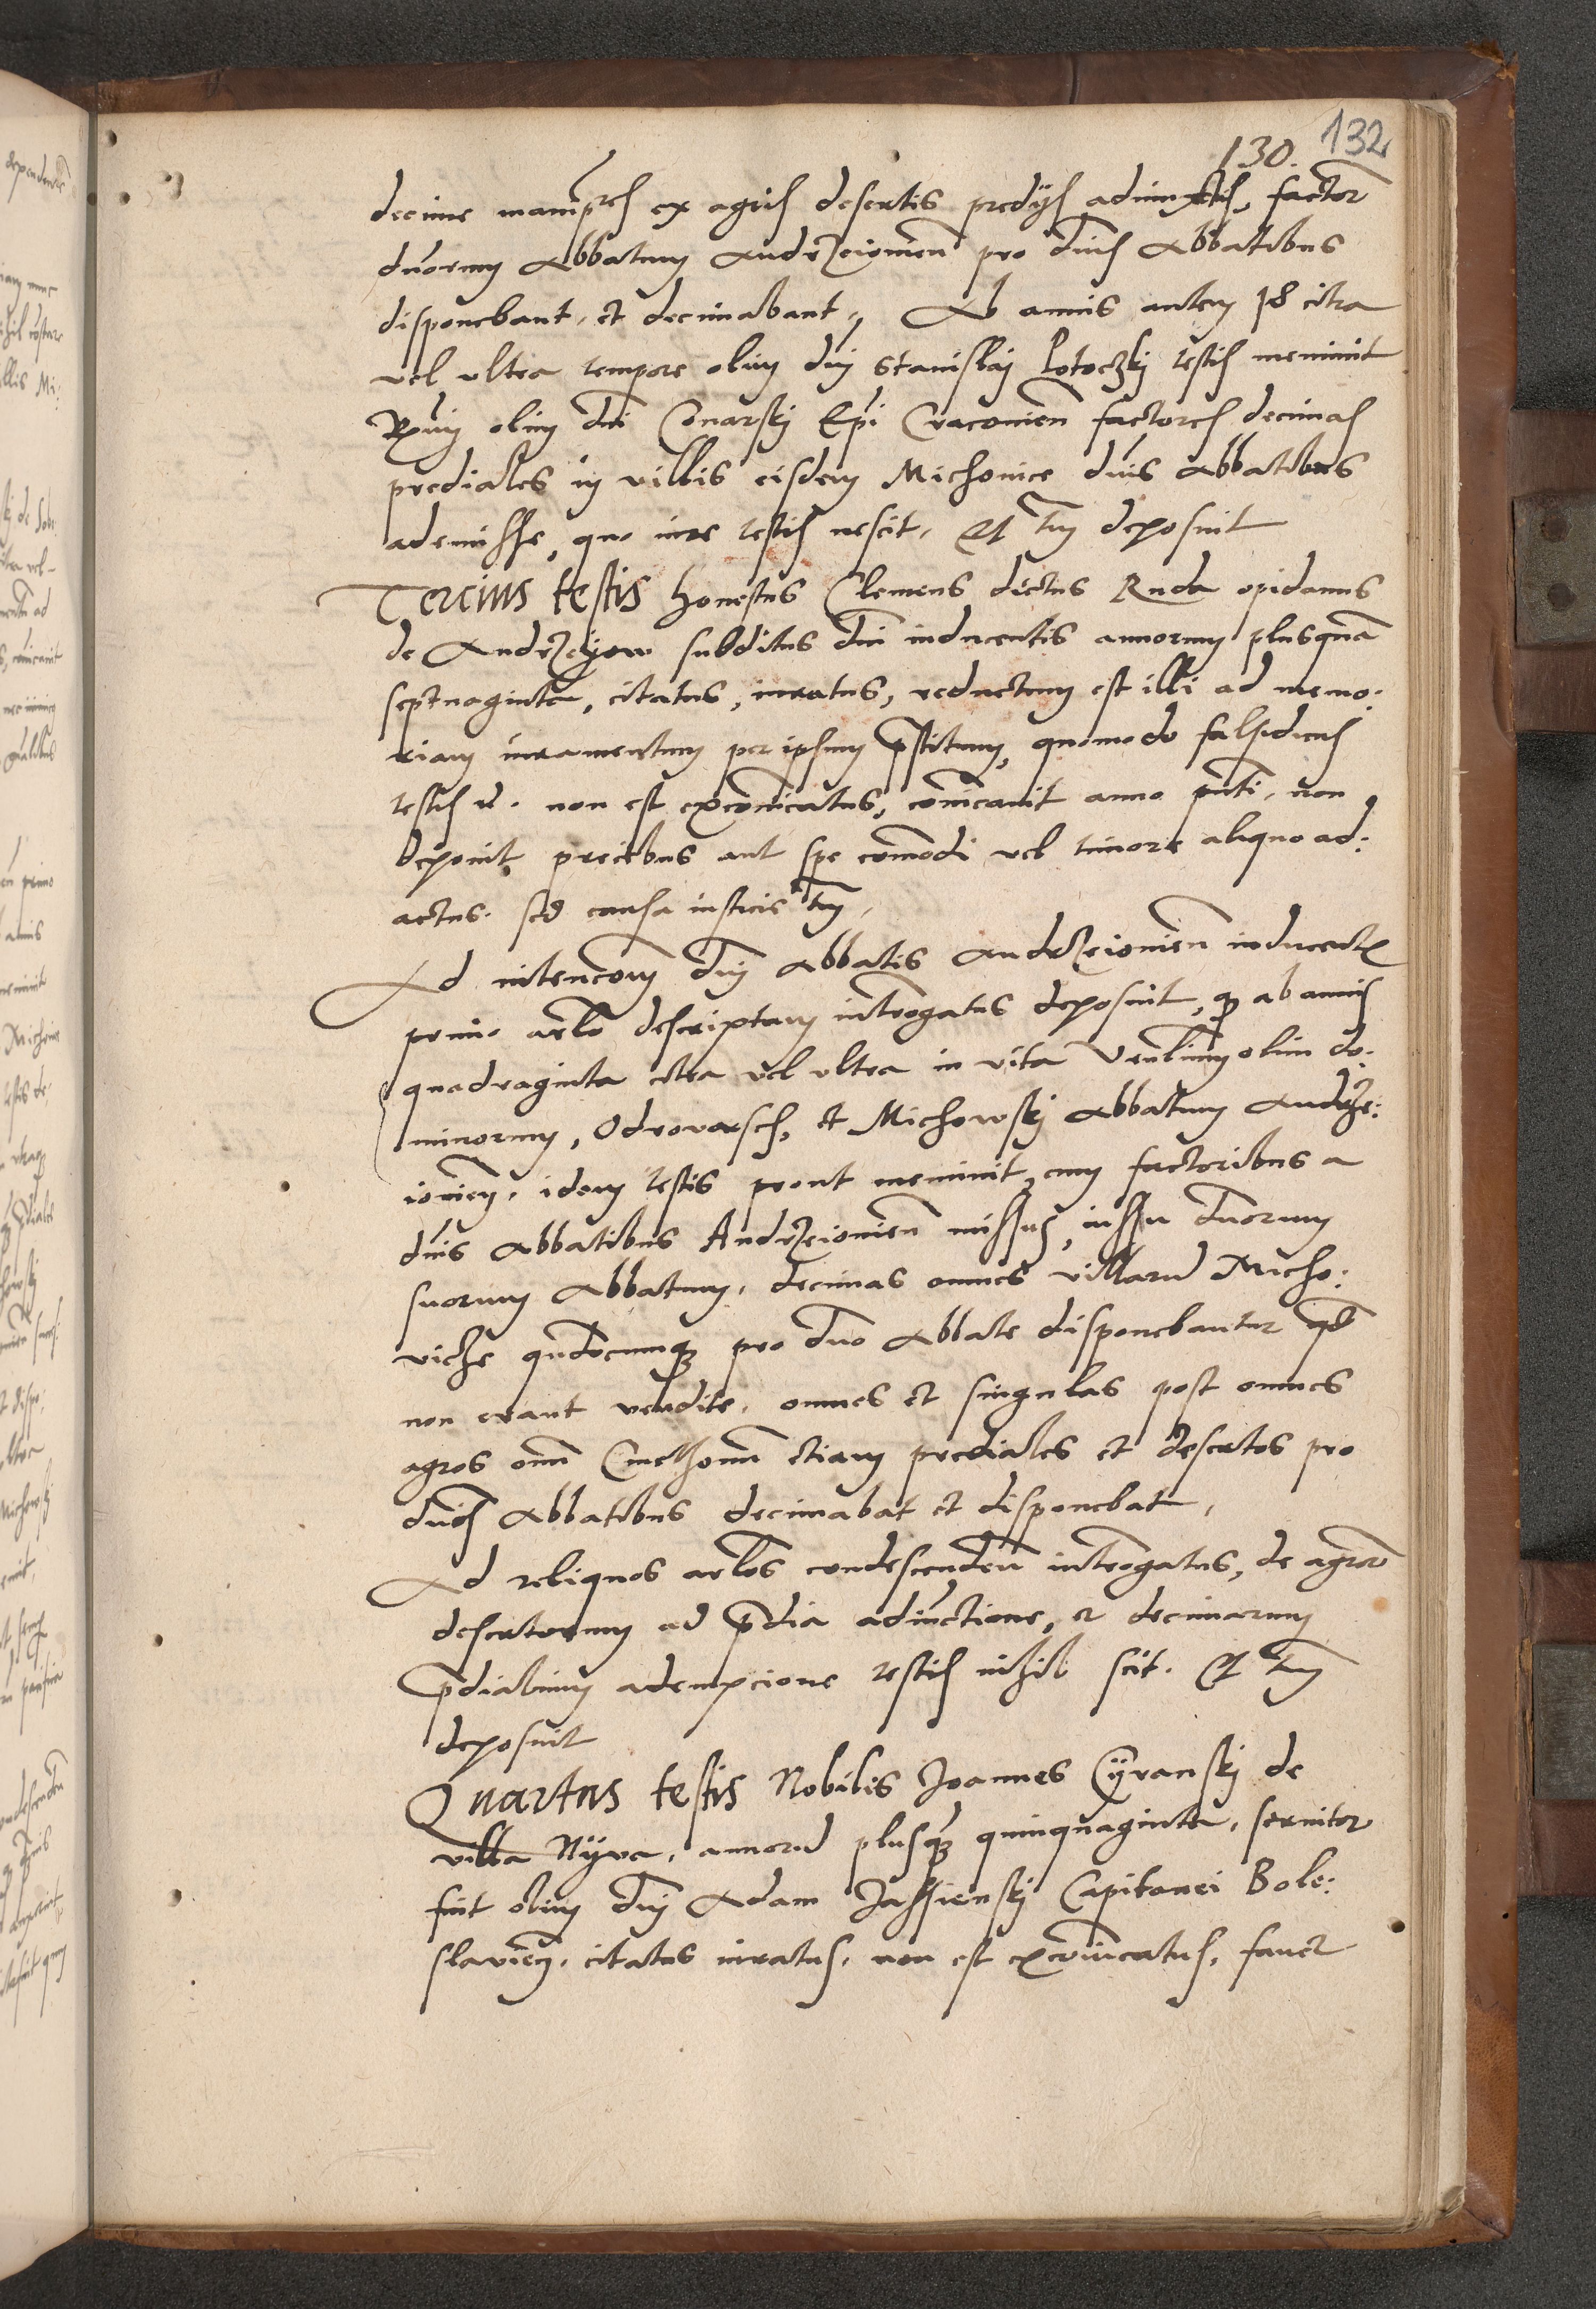 132
130.
decime manipłes ex agris desertis predijs adiunctis, factor
dnorum Abbatum Andrzeiouien̄ pro dnis Abbatibus
disponebant, et decimabant, Ab annis autem 18 citra
vel vltra tempore olim dnj Stanislaj testis meminit
Rmj olim dnj Conarskj Epi Cracouien̄ factores decimas
prediales in villis eisdem Michouice dnis Abbatibus
ademisse, quo iure testis nescit, Et tm deposuit
Tercius testis honestus Clemens dictus Ruda opidanus
de Andrzeyow subditus dnj inducentis annorum plusquā
septuaginta, citatus, iuratus, reductum est illi ad memo:
riam iuramentum per ipsum p̄stitum, quomodo falsidicus
testis non est excōmicatus, cōmicauit anno pn̄ti, non
deponit precibus aut spe cōmodi vel timore aliquo ad:
actus. sed causa iusticie tm̄,
Ad intencōem dnj Abbatis Andrzeiouien̄ inducentis
primo arlo descriptam interogatus deposuit, q ab annis
quadraginta citra vel vltra in vita Vener̄lium olim do:
minorum, Odrowarsch, et Michowskj Abbatum Andrze:
iouien̄, idem testis prout meminit, cum factoribus a
dnis Abbatibus Andrzeiouien̄ missus, iussu dnorum
suorum Abbatum, decimas omnes villarū Micho:
vicze qn̄documq pro dno Abbate disponebantur q̄d
non erant vendite, omnes et singulas post omnes
agros om̄ Cmethonū etiam prediales et desertos pro
dnis Abbatibus decimabat et disponebat,
Ad reliquos arlos condescenden̄ interogatus, de agror̄
desertorum ad p̄dia adiunctione, et decimarum
p̄dialium adempcione testis nihil scit. Et tm̄
deposuit
Quartus testis Nobilis Joannes Cÿranskj de
villa Nÿva, annorū plusq̄ quinquaginta, seruitor
fuit olim dnj Adam Jassienskj Capitanei Bole:
slavien̄, citatus iuratus, non est excōmicatus, fauet